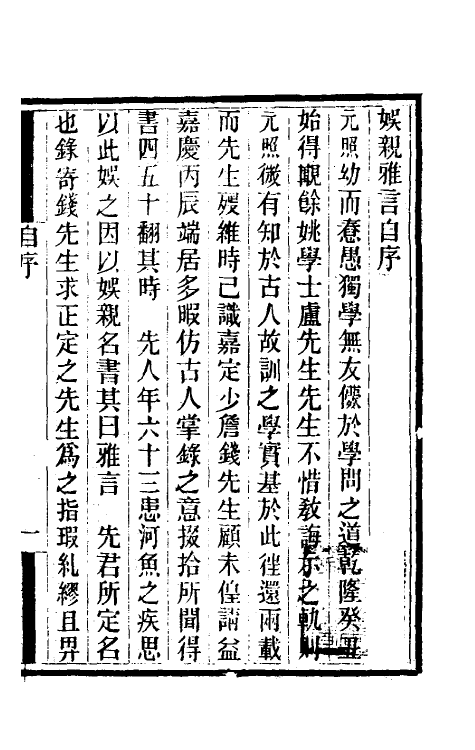 娛親雅言自序
元照幼而惷愚獨學無友儚於學問之道乾隆癸丑
始得覯餘姚學士盧先生先生不惜敎誨示之軌則
元照微有知於古人故訓之學實基於此徃還兩載
而先生歿維時已識嘉定少詹錢先生顧未偟請益
嘉慶丙辰端居多暇仿古人掌錄之意掇拾所聞得
書四五十翻其時　先人年六十三患河魚之疾思
以此娛之因以娛親名書其曰雅言　先君所定名
也錄寄錢先生求正定之先生爲之指瑕糺繆且畀
自序
一